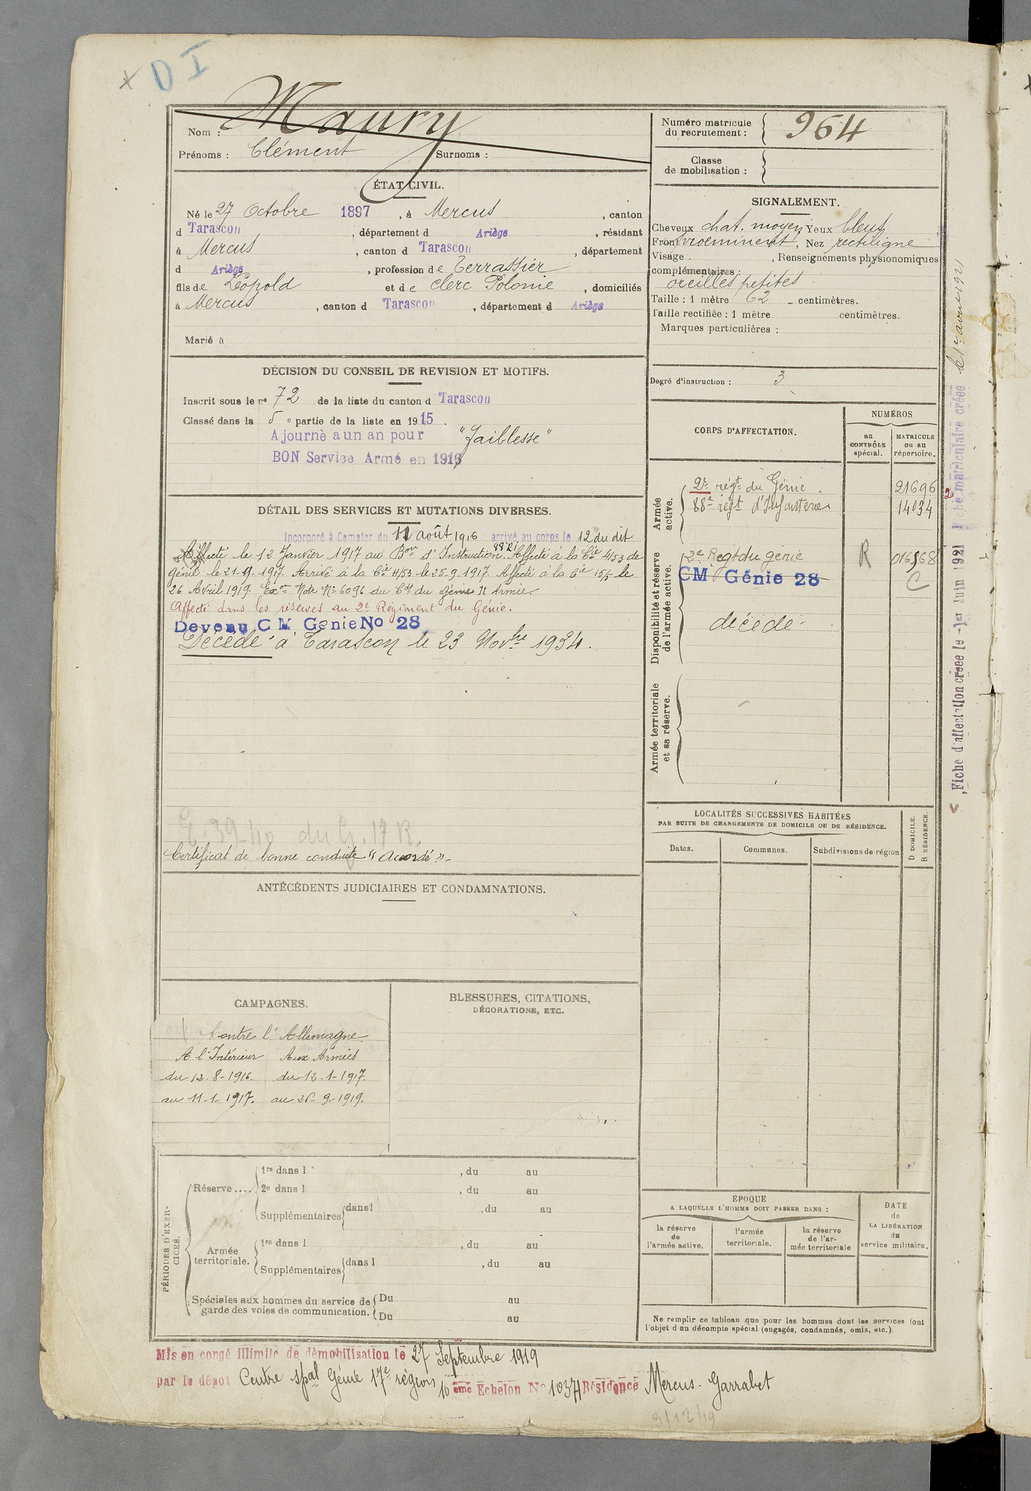 D I
Nom : Maury
Prénoms : Clément Surnoms :
Numéro matricule du recrutement : 964
Classe de mobilisation :
ÉTAT CIVIL.
Né le 27 Octobre 1897, à Mercus, canton
d Tarascon, département d Ariège, résidant
à Mercus, canton d Tarascon, département
d Ariège, profession de Terrassier
fils de Léopold et de Clerc Polonie, domiciliés
à Mercus, canton d Tarascon, département d Ariège
Marié à
SIGNALEMENT.
Cheveux chat. moyen Yeux bleus,
Front proeminent, Nez rectiligne
Visage , Renseignements physionomiques
complémentaires :
oreilles petites
Taille : 1 mètre 62 centimètres.
Taille rectifiée : 1 mètre centimètres.
Marques particulières :
Degré d'instruction : 3
DÉCISION DU CONSEIL DE REVISION ET MOTIFS.
Inscrit sous le nº 72 de la liste du canton d Tarascon
Classé dans la 5 e partie de la liste en 1915.
Ajourné a un an pour "faiblesse"
BON Service Armé en 1916
DÉTAIL DES SERVICES ET MUTATIONS DIVERSES.
Incorporé à Compter du 11 août 1916 arrivé au corps le 12 du dit
Affecté le 12 Janvier 1917 au Bon d'Instruction. Affecté à la Cie 4/53 de
Génie le 21-9-1917. Arrivé à la Cie 4/53 le 25-9-1917. Affecté à la Cie 15/5 le
26 Avril 1919. Ex Note Nº 6096 du Génie
Affecté dans les réserves au 2e Régiment du Génie.
Devenu C M Génie No 28
Décédé à Tarascon le 23 Novbre 1934.
du G. 17 R.
Certificat de bonne conduite "accordé"
CORPS D'AFFECTATION.
NUMÉROS
AU CONTRÔLE spécial.
MATRICULE OU AU répertoire.
Armée active.
2e régt du Génie. 21696
88e régt d'Infanterie 14034
Disponibilité et réserve de l'armée active.
2e Regt du génie R
CM Génie 28 C
décédé
Armée territoriale et sa réserve.
Fiche matriculaire créée le 1er avril 1921
Fiche d'affectation créée le 1er Juin 1921
LOCALITÉS SUCCESSIVES HABITÉES
PAR SUITE DE CHANGEMENTS DE DOMICILE OU DE RÉSIDENCE.
Dates. Communes. Subdivisions de région
D DOMICILE.
R RÉSIDENCE.
ANTÉCÉDENTS JUDICIAIRES ET CONDAMNATIONS.
CAMPAGNES.
Contre l'Allemagne
A l'Intérieur Aux Armées
du 12-8-1916. du 12-1-1917.
au 11-1-1917. au 26-9-1919.
BLESSURES, CITATIONS,
DÉCORATIONS, ETC.
PÉRIODES D'EXERCICES.
Réserve.... 1re dans l , du au
2e dans l , du au
Supplémentaires dans l , du au
Armée territoriale. 1re dans l , du au
Supplémentaires dans l , du au
Spéciales aux hommes du service de garde des voies de communication.
Du au
Du au
ÉPOQUE
A LAQUELLE L'HOMME DOIT PASSER DANS :
la réserve de l'armée active.
l'armée territoriale.
la réserve de l'armée territoriale
DATE de LA LIBÉRATION du service militaire.
Ne remplir ce tableau que pour les hommes dont les services font
l'objet d'un décompte spécial (engagés, condamnés, omis, etc.).
Mis en congé illimité de démobilisation le 27 Septembre 1919
par le dépôt Centre spal Génie 17e région 10 eme Echelon Nº 1037 Résidence Mercus-Garrabet
3/12/19